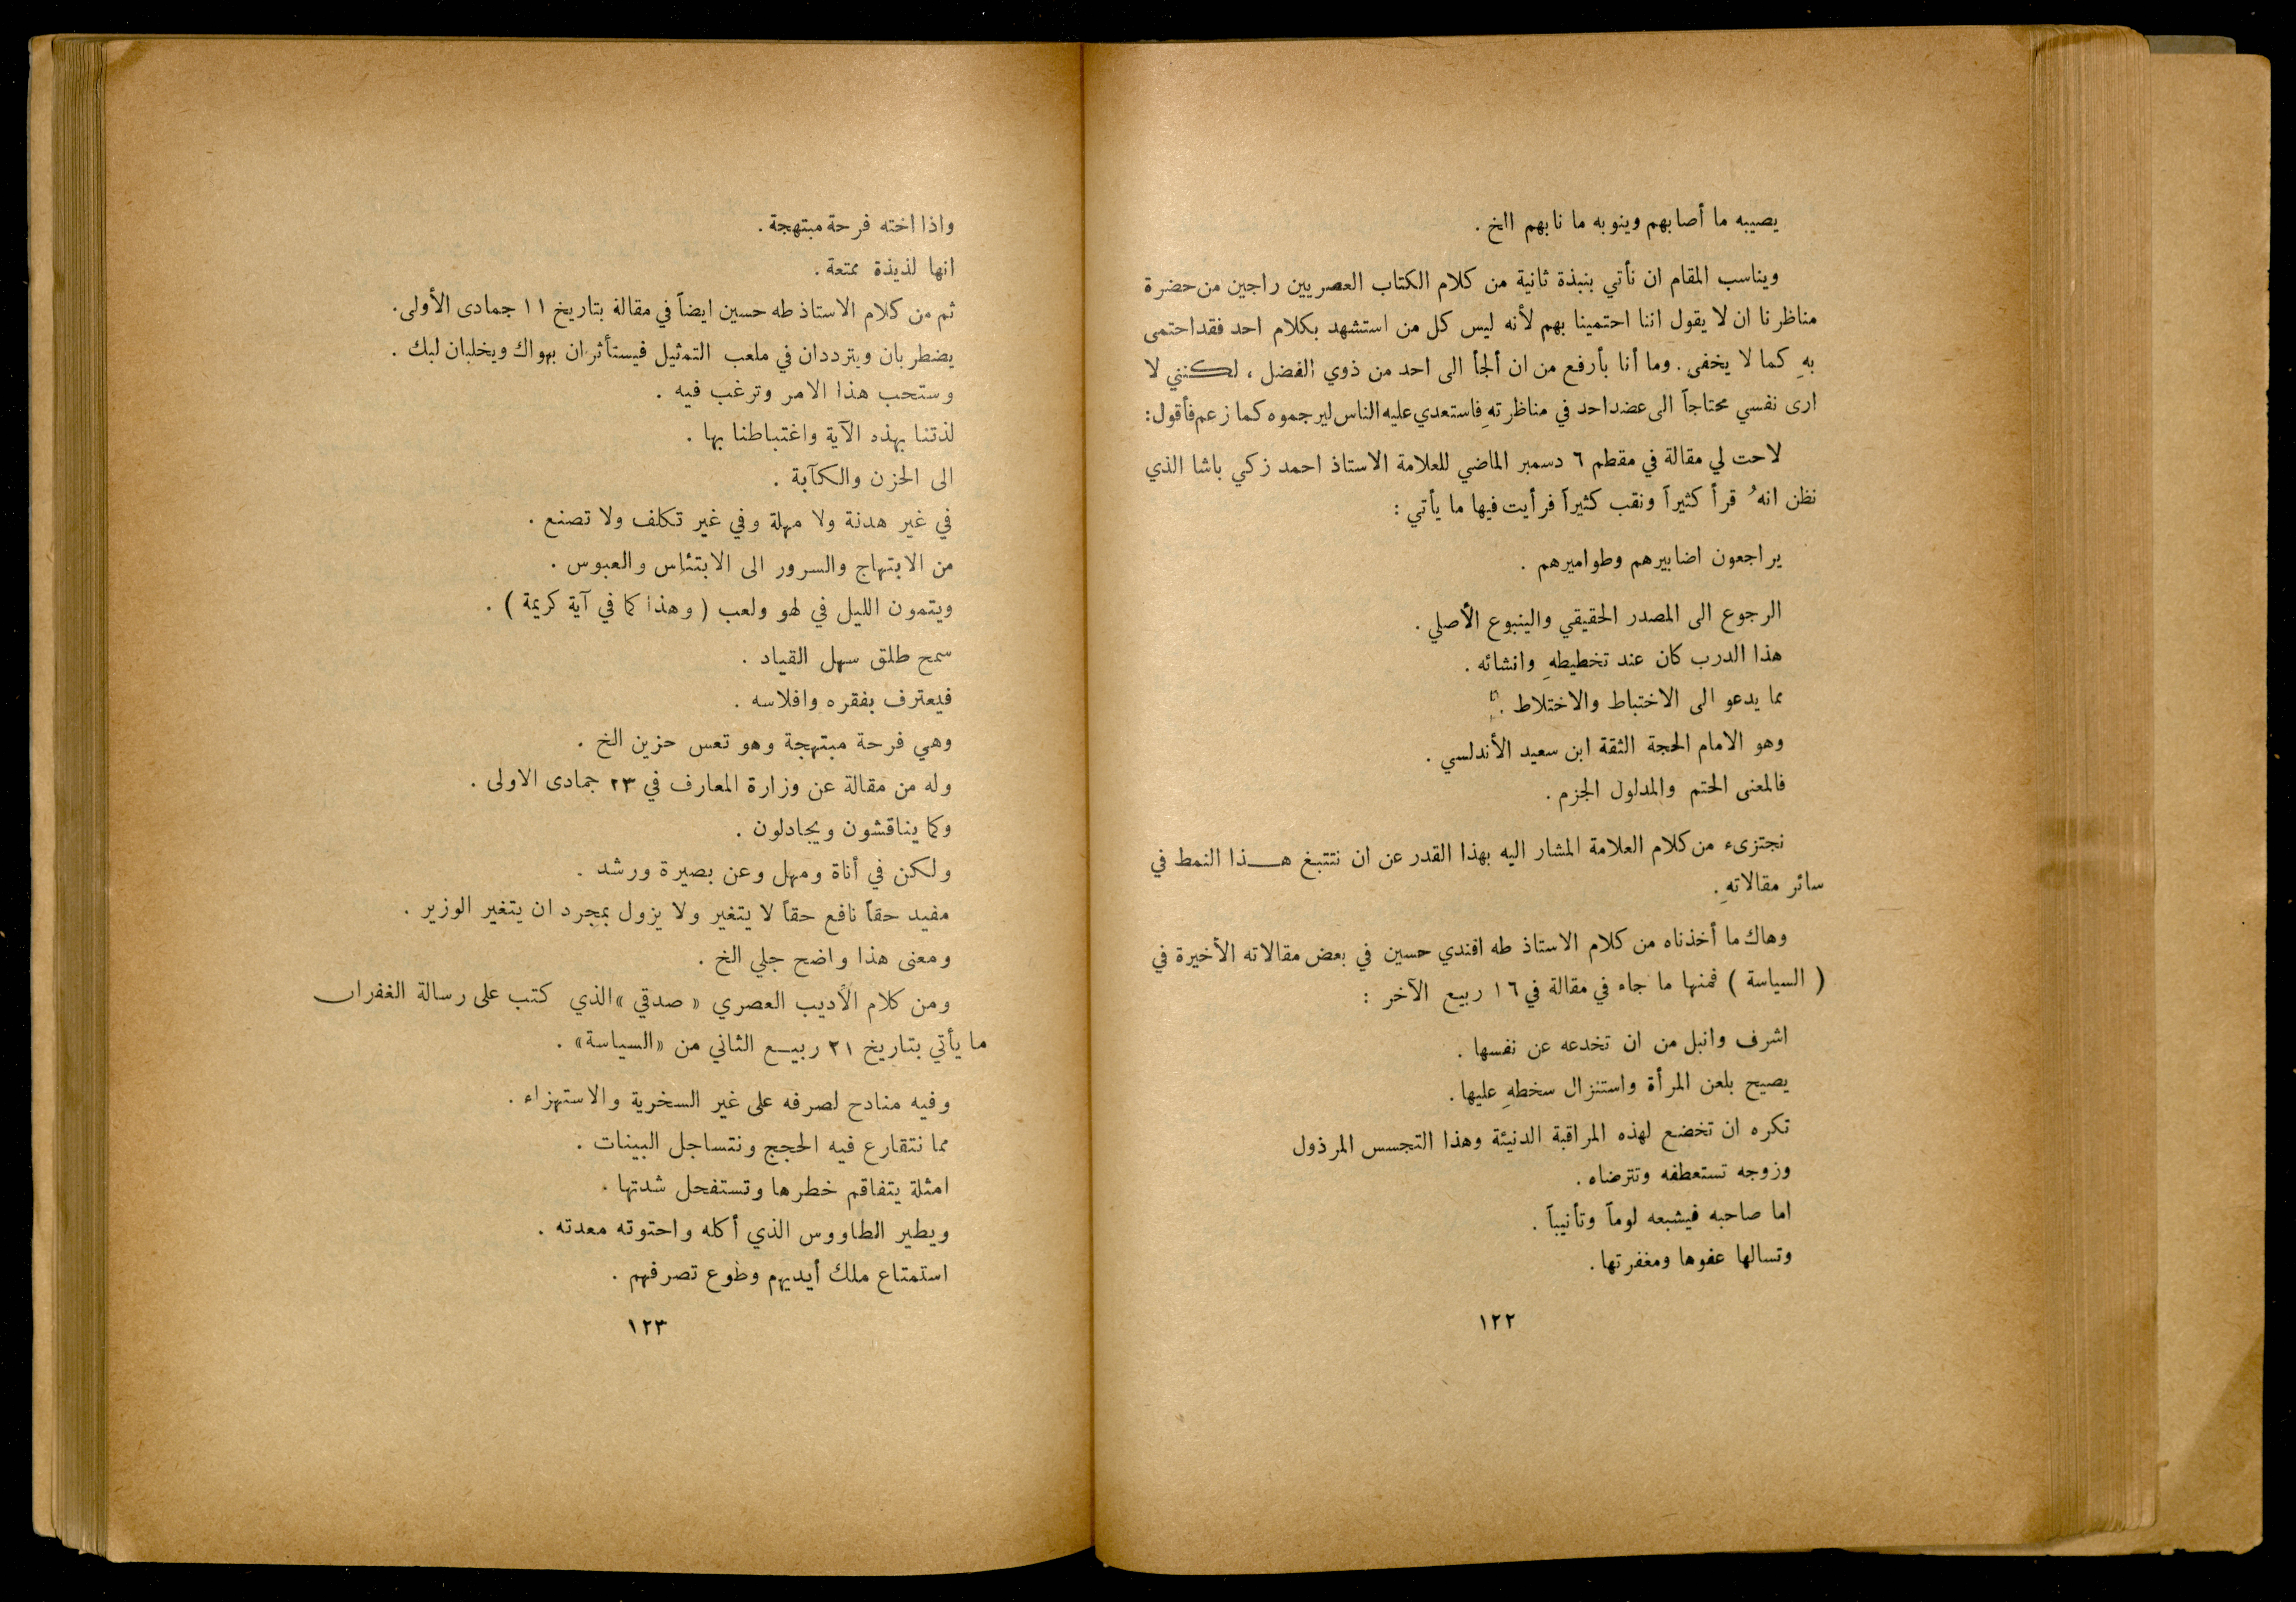 يصيبه ما أصابهم وينوبه ما نابهم الخ .
ويناسب المقام ان نأتي بنبذة ثانية من كلام الكتاب العصريين راجين من حضرة
مناظرنا ان لا يقول اننا احتمينا بهم لأنه ليس كل من استشهد بكلام احد فقد احتمى
بهِ كما لا يخفى . وما أنا بأرفع من ان ألجأ الى احد من ذوي الفضل ، لكنني لا
ارى نفسي محتاجاً الى عضد احد في مناظرتهِ فاستعدي عليه الناس ليرجموه كما زعم فأقول :
لاحت لي مقالة في مقطم ٦ دسمبر الماضي للعلامة الاستاذ احمد زكي باشا الذي
نظن انهُ قرأ كثيراً ونقب كثيراً فرأيت فيها ما يأتي :
يراجعون اضابيرهم وطواميرهم .
الرجوع الى المصدر الحقيقي والينبوع الأصلي .
هذا الدرب كان عند تخطيطهِ وانشائه .
مما يدعو الى الاختباط والاختلاط .
وهو الامام الحجة الثقة ابن سعيد الأندلسي .
فالمعنى الحتم والمدلول الجزم .
نجتزىء من كلام العلامة المشار اليه بهذا القدر عن ان نتتبع هـــذا النمط في
سائر مقالاتهِ .
وهاك ما أخذناه من كلام الاستاذ طه افندي حسين في بعض مقالاته الأخيرة في
( السياسة ) فمنها ما جاء في مقالة في ١٦ ربيع الآخر :
اشرف وانبل من ان تخدعه عن نفسها .
يصيح بلعن المرأة واستنزال سخطهِ عليها .
تكره ان تخضع لهذه المراقبة الدنيئة وهذا التجسس المرذول
وزوجه تستعطفه وتترضاه .
اما صاحبه فيشبعه لوماً وتأنيباً .
وتسالها عفوها ومغفرتها .
١٢٢
واذا اخته فرحة مبتهجة .
انها لذيذة ممتعة .
ثم من كلام الاستاذ طه حسين ايضاً في مقالة بتاريخ ١١ جمادى الأولى .
يضطربان ويترددان في ملعب التمثيل فيستأثران بهواك ويخلبان لبك .
وستحب هذا الامر وترغب فيه .
لذتنا بهذه الآية واغتباطنا بها .
الى الحزن والكآبة .
في غير هدنة ولا مهلة وفي غير تكلف ولا تصنع .
من الابتهاج والسرور الى الابتئاس والعبوس .
ويتمون الليل في لهو ولعب ( وهذا كما في آية كريمة ) .
سمح طلق سهل القياد .
فيعترف بفقره وافلاسه .
وهي فرحة مبتهجة وهو تعس حزين الخ .
وله من مقالة عن وزارة المعارف في ٢٣ جمادى الاولى .
وكما يناقشون ويجادلون .
ولكن في أناة ومهل وعن بصيرة ورشد .
مفيد حقاً نافع حقاً لا يتغير ولا يزول بمجرد ان يتغير الوزير .
ومعنى هذا واضح جلي الخ .
ومن كلام الأديب العصري « صدقي » الذي كتب على رسالة الغفران
ما يأتي بتاريخ ٢١ ربيـــع الثاني من «السياسة» .
وفيه منادح لصرفه على غير السخرية والاستهزاء .
مما نتقارع فيه الحجج ونتساجل البينات .
امثلة يتفاقم خطرها وتستفحل شدتها .
ويطير الطاووس الذي أكله واحتوته معدته .
استمتاع ملك أيديهم وطوع تصرفهم .
١٢٣